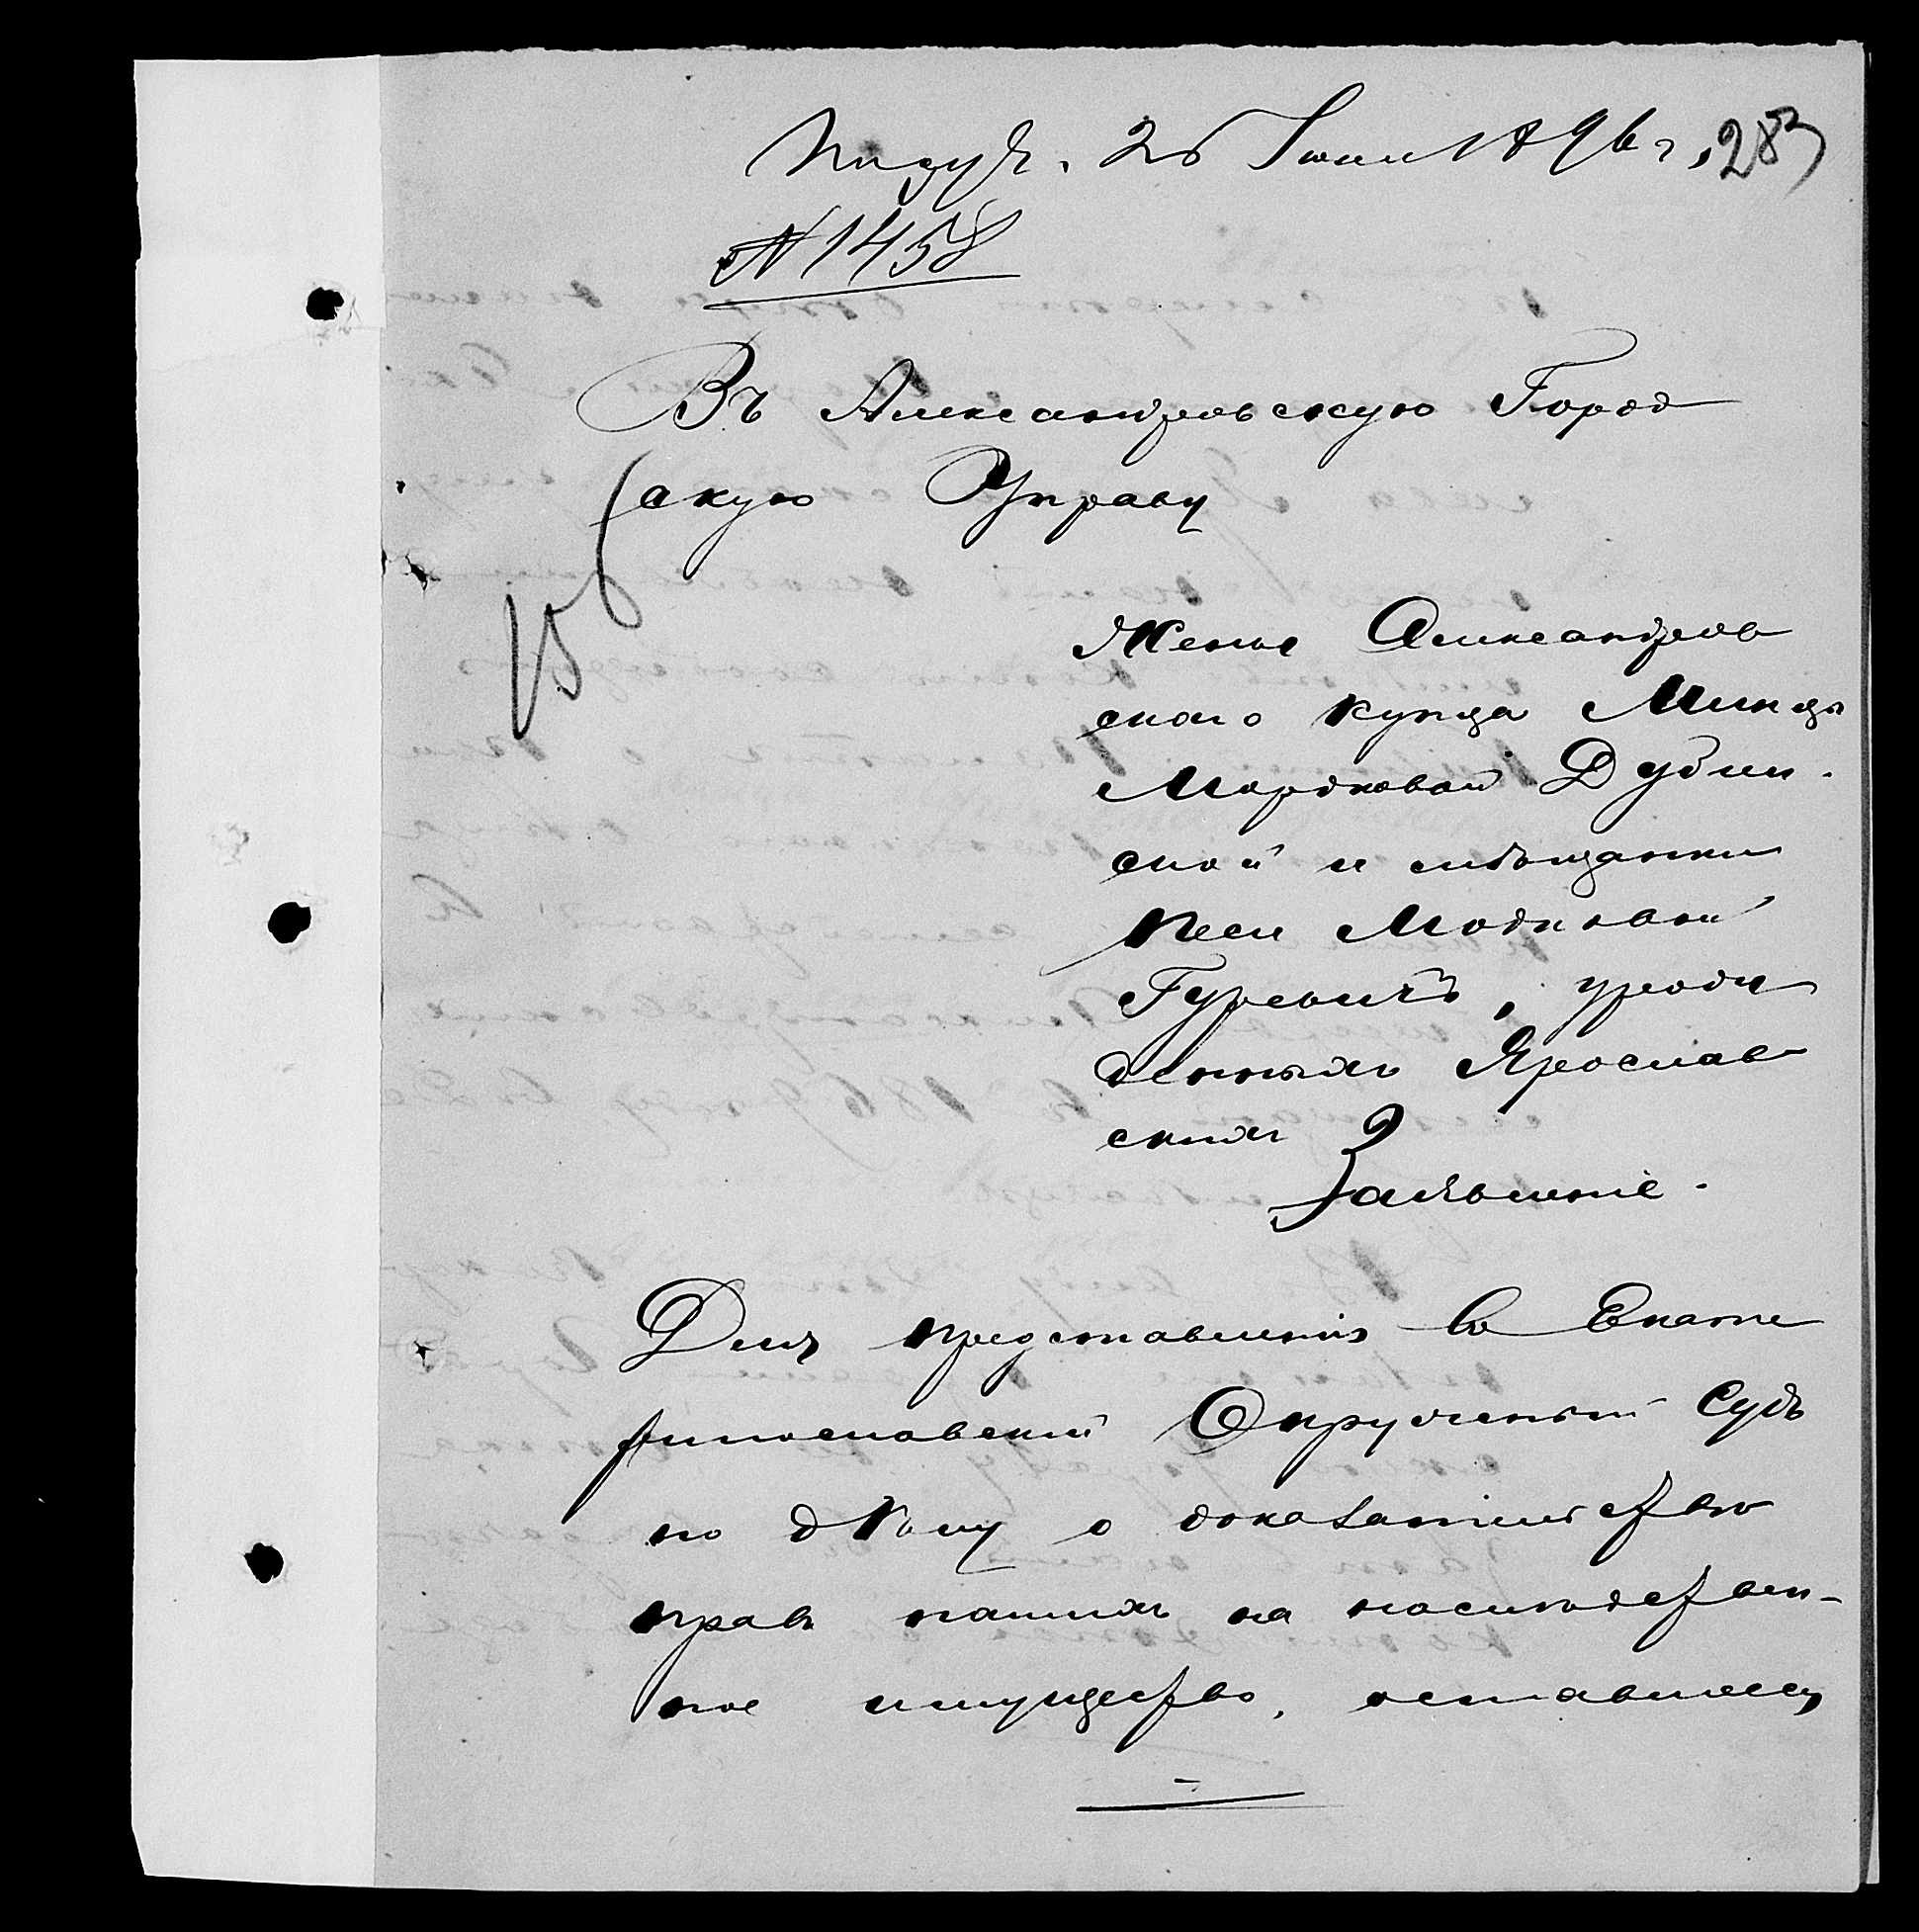 Получ. 26 Июня 1896 г. 283
№ 1458
Въ Александровскую Город
скую Управу
Жены Александров
скаго купца Минды
Мордковой Дубин-
ской и мѣщанки
Песи Модковой
Гуревичъ, урож
денныхъ Ярослав
скихъ
Заявленіе.
Для представленія въ Екате
ринославскій Окружный Судъ
по дѣлу о доказательство
правъ нашихъ на наслѣдствен-
ное имущество, оставшееся